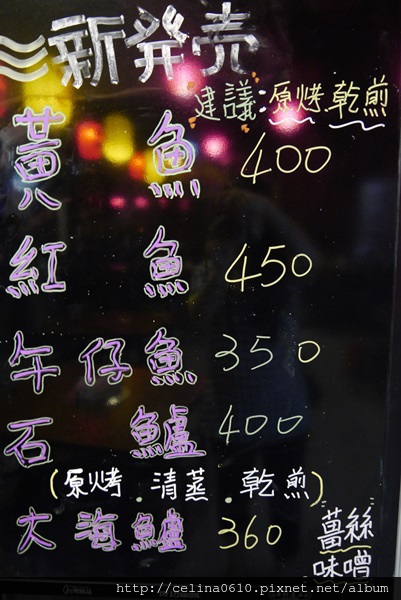 新発売
建議:原烤.乾煎
黃魚 400
紅魚 450
午仔魚 350
石鱸 400
(原烤.清蒸.乾煎)
大海鱸 360
薑絲
味噌
http://celina0610.pixnet.net/album